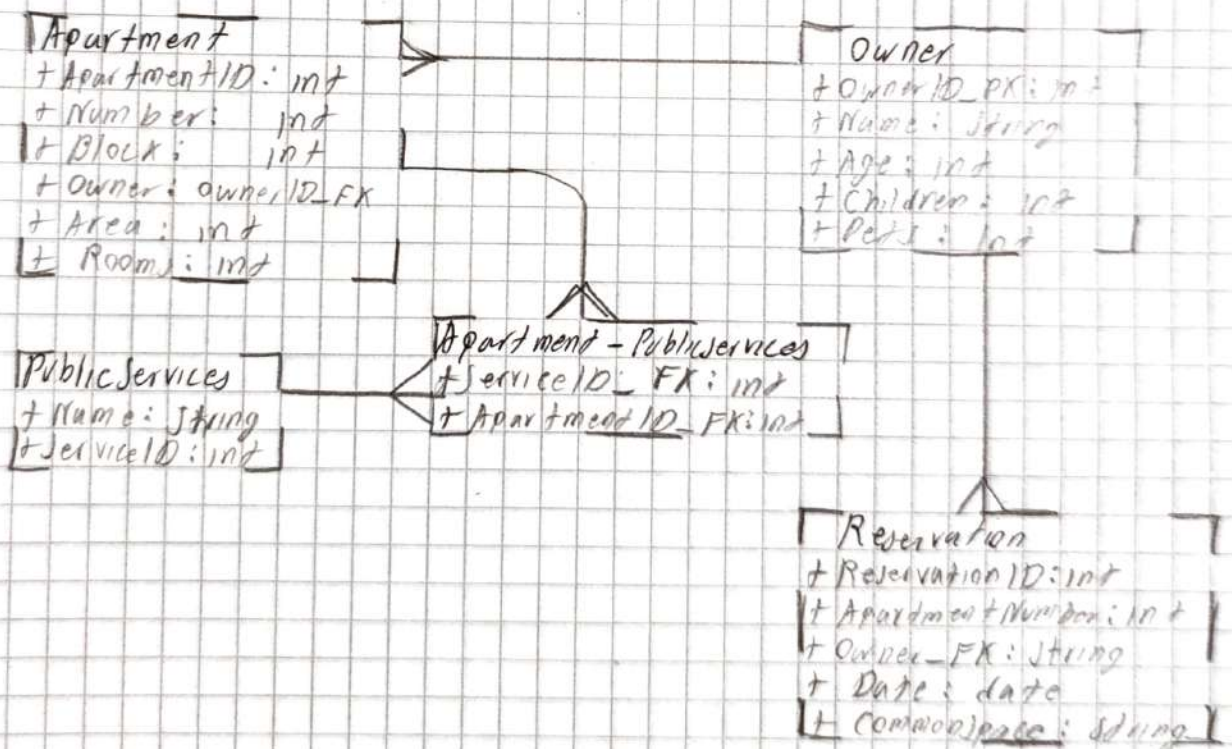 Apartment
+ ApartmentID: int
+ Number: int
+ Block: int
+ Owner: ownerID_FK
+ Area: int
+ Rooms: int
Owner
+ OwnerID_PK: int
+ Name: string
+ Age: int
+ Children: int
+ Pets: int
Apartment-Publicservices
+ServiceID_FK: int
+ApartmentID_FK:int
PublicServices
+ Name: string
+ServiceID:int
Reservation
+ ReservationID:int
+ ApartmentNumber: int
+ Owner_FK: string
+ Date: date
+ Commonspace: string